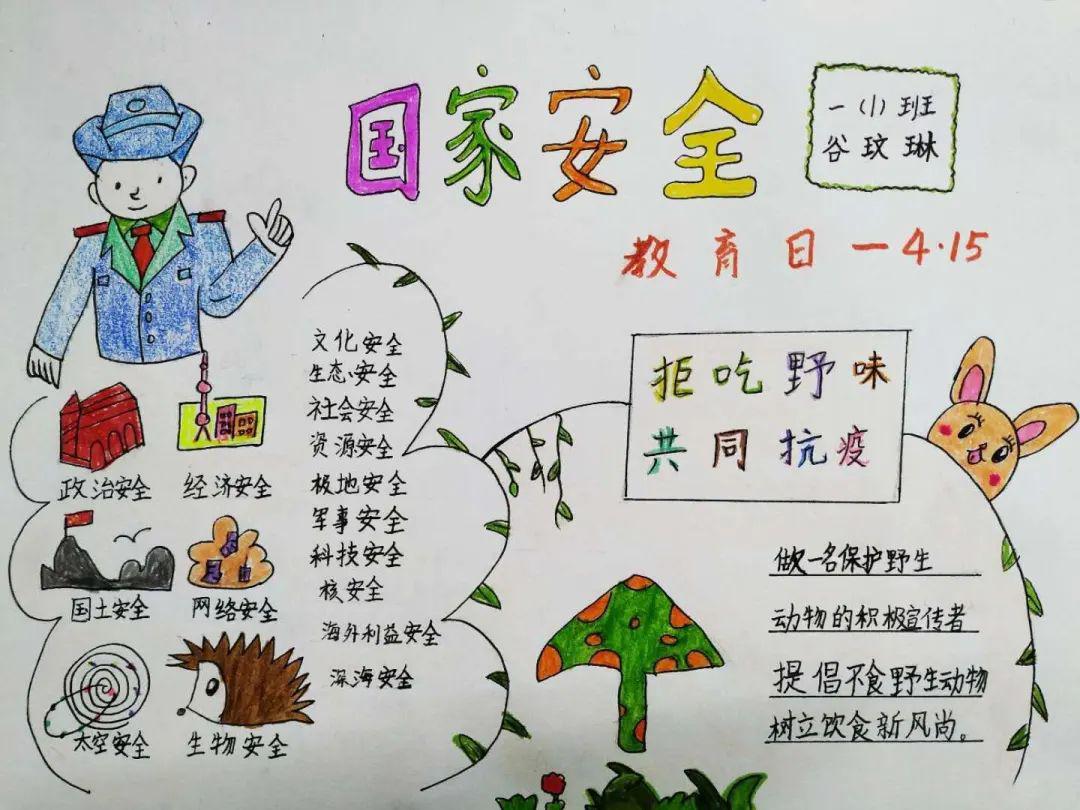 国家安全
一(1)班
谷玟琳
教育日一4·15
文化安全
生态安全
社会安全
资源安全
极地安全
军事安全
科技安全
核安全
海外利益安全
深海安全
政治安全 经济安全
国土安全 网络安全
太空安全 生物安全
拒吃野味
共同抗疫
做一名保护野生
动物的积极宣传者
提倡不食野生动物
树立饮食新风尚。